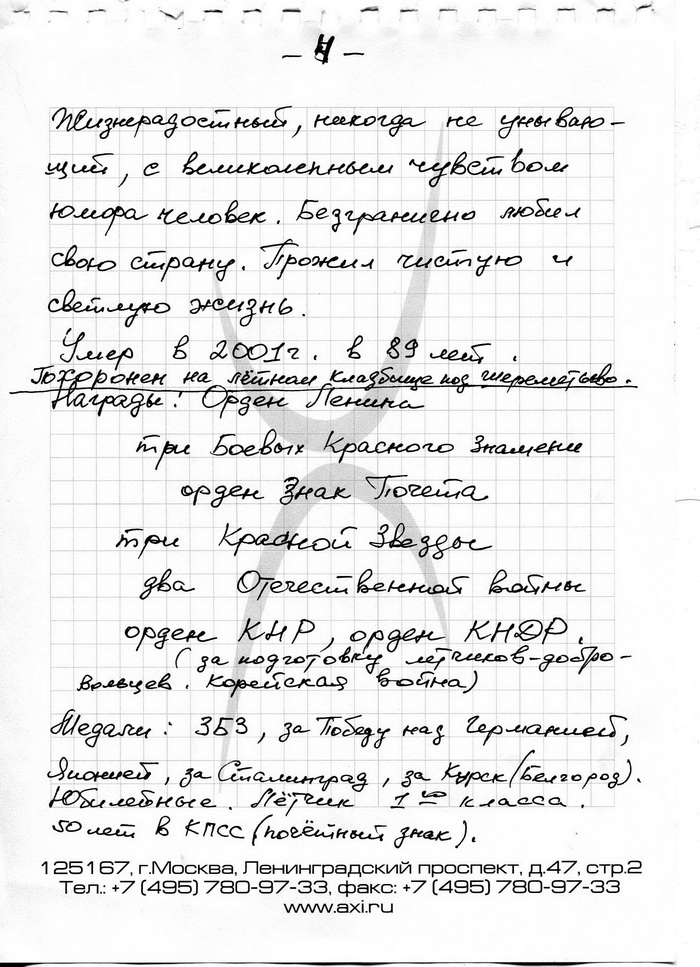 – 4 –
Жизнерадостный, никогда не унываю-
щий, с великолепным чувством
юмора человек. Безгранично любил
свою страну. Прожил чистую и
светлую жизнь.
Умер в 2001г. в 89 лет.
Похоронен на лётном кладбище под Шереметьево.
Награды: Орден Ленина
три Боевых Красного Знамени
орден Знак Почета
три Красной Звезды
два Отечественной войны
орден КНР, орден КНДР.
(за подготовку лётчиков-добро-
вольцев. Корейская война)
Медали: ЗБЗ, за Победу над Германией,
Японией, за Сталинград, за Курск (Белгород).
Юбилейные. Лётчик 1го класса.
50 лет в КПСС (почётный знак).
125167, г.Москва, Ленинградский проспект, д.47, стр.2
Тел.: +7 (495) 780-97-33, факс: +7 (495) 780-97-33
www.axi.ru